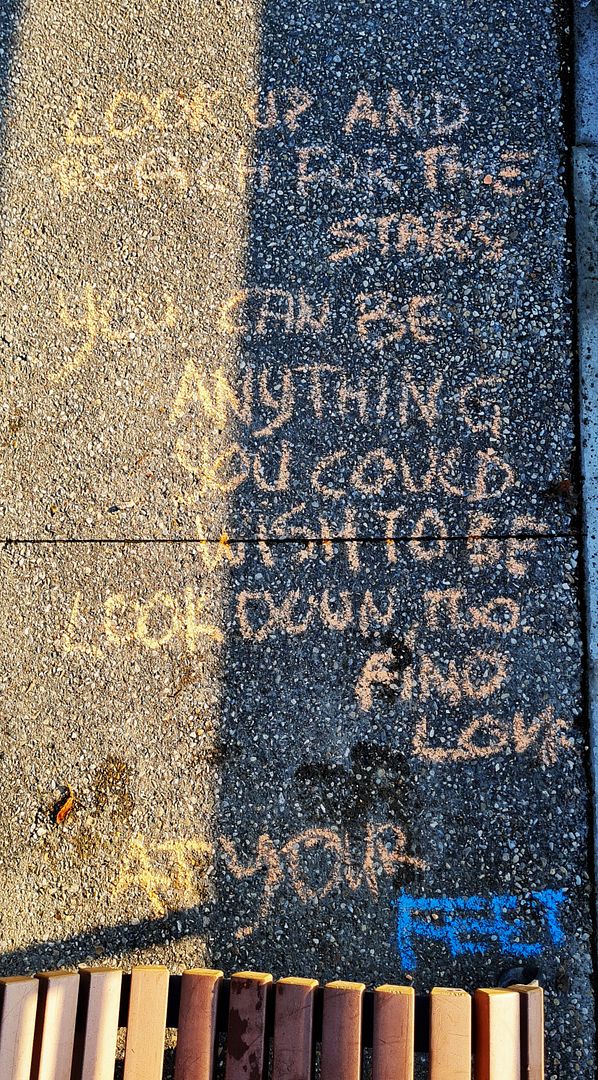 LOOK UP AND
REACH FOR THE
STARS
YOU CAN BE
ANYTHING
YOU COULD
WISH TO BE
LOOK DOWN
FIND
LOVE
AT YOUR
FEET